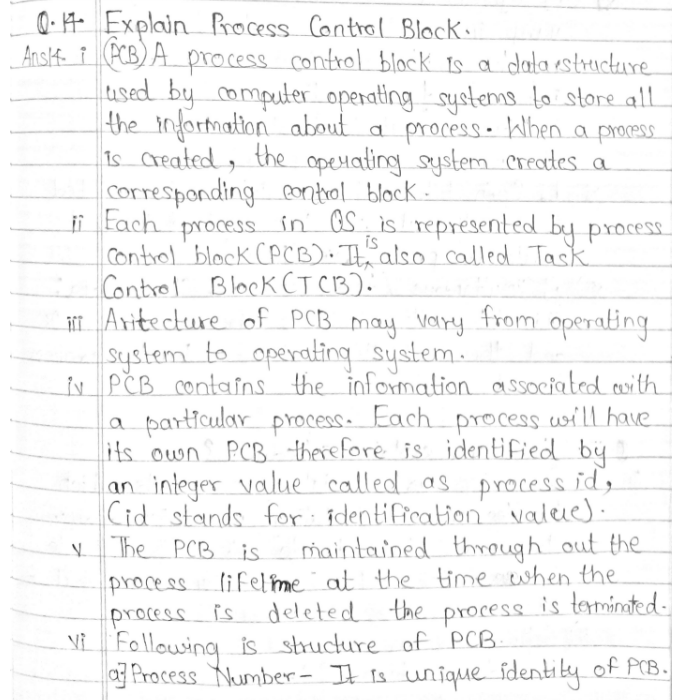 Q.14 Explain Process Control Block.
Ans14 i (PCB) A process control block is a data structure
used by computer operating systems to store all
the information about a process. When a process
is created, the operating system creates a
corresponding control block.
ii Each process in OS is represented by process
control block (PCB). It is also called Task
Control Block (TCB).
iii Aritecture of PCB may vary from operating
system to operating system.
iv PCB contains the information associated with
a particular process. Each process will have
its own PCB therefore is identified by
an integer value called as process id,
(id stands for identification value).
v The PCB is maintained through out the
process lifetime at the time when the
process is deleted the process is terminated.
vi Following is structure of PCB.
a] Process Number - It is unique identity of PCB.